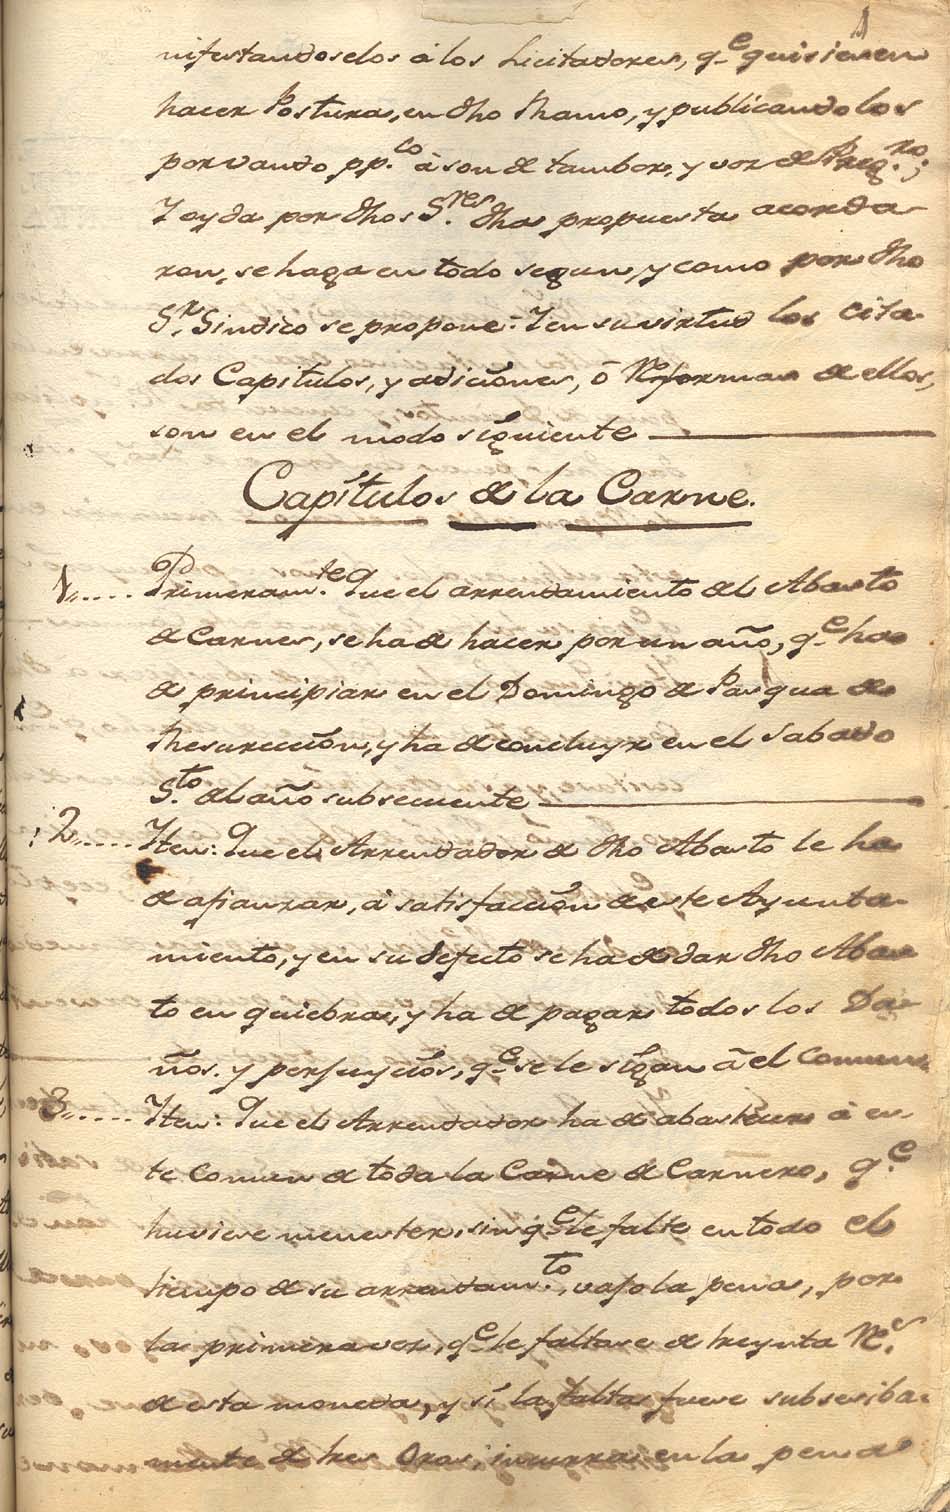 nifestandoselos á los Licitadores, q.e quisiesen
hacer Postura, en dho Ramo, y publicandolos
por vando pp.co á son de tambor, y voz de Preg.ro;
Y oyda por dhos S.res dha propuesta acorda-
ron, se haga en todo segun, y como por dho
S.r Sindico se propone: Y en su virtud los cita-
dos Capitulos, y adiciones, ó Reformas de ellos,
son en el modo siguiente
Capítulos de la Carne.
1.... Primeram.te Que el arrendamiento del Abasto
de Carnes, se ha de hacer por un año, q.e ha
de principiar en el Domingo de Pasqua de
Resurección, y ha de concluyr en el Sabado
S.to del año subsecuente
2.... Yten: Que el Arrendador de dho Abasto le ha
de afianzar, á satisfacción de este Ayunta-
miento, y en su defecto se ha de dar dho Abas-
to en quiebra, y ha de pagar todos los Da-
ños. y perjuyciós, q.e se le sígan á el Comun
3.... Yten: Que el Arrendador ha de abastecer á es-
te Comun de toda la Carne de Carnero, q.e
huviese menester, sin q.e le falte en todo el
tiempo de su arrendam.to, vajo la pena, por
la primera vez, q.e le faltase de treynta R.s
de esta moneda, y sí la falta fuese subseciba-
mente de tres Oras, incurra en la pena de